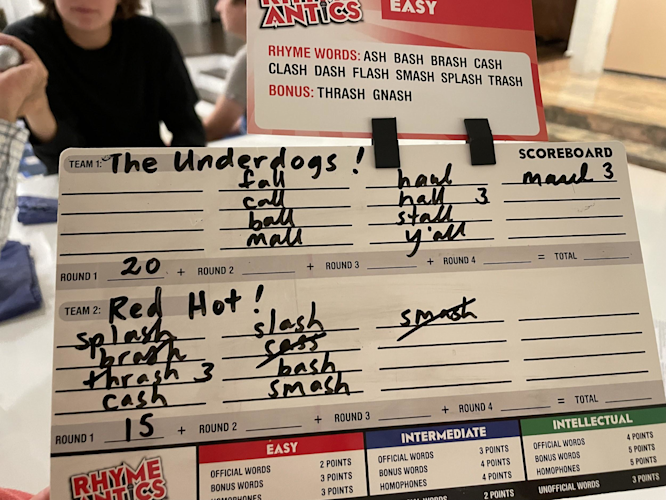 RHYME
ANTICS
EASY
RHYME WORDS: ASH BASH BRASH CASH
CLASH DASH FLASH SMASH SPLASH TRASH
BONUS: THRASH GNASH
TEAM 1: The Underdogs! SCOREBOARD
fall haul maul 3
call hall 3
ball stall
mall y'all
ROUND 1 20 + ROUND 2 + ROUND 3 + ROUND 4 = TOTAL
TEAM 2: Red Hot!
splash slash smash
brash sass
thrash 3 bash
cash smash
ROUND 1 15 + ROUND 2 + ROUND 3 + ROUND 4 = TOTAL
RHYME
ANTICS
EASY
OFFICIAL WORDS 2 POINTS
BONUS WORDS 3 POINTS
HOMOPHONES 3 POINTS
INTERMEDIATE
OFFICIAL WORDS 3 POINTS
BONUS WORDS 4 POINTS
HOMOPHONES 4 POINTS
2 POINTS
INTELLECTUAL
OFFICIAL WORDS 4 POINTS
BONUS WORDS 5 POINTS
HOMOPHONES 5 POINTS
UNOFFICIAL WORDS 3 POINTS